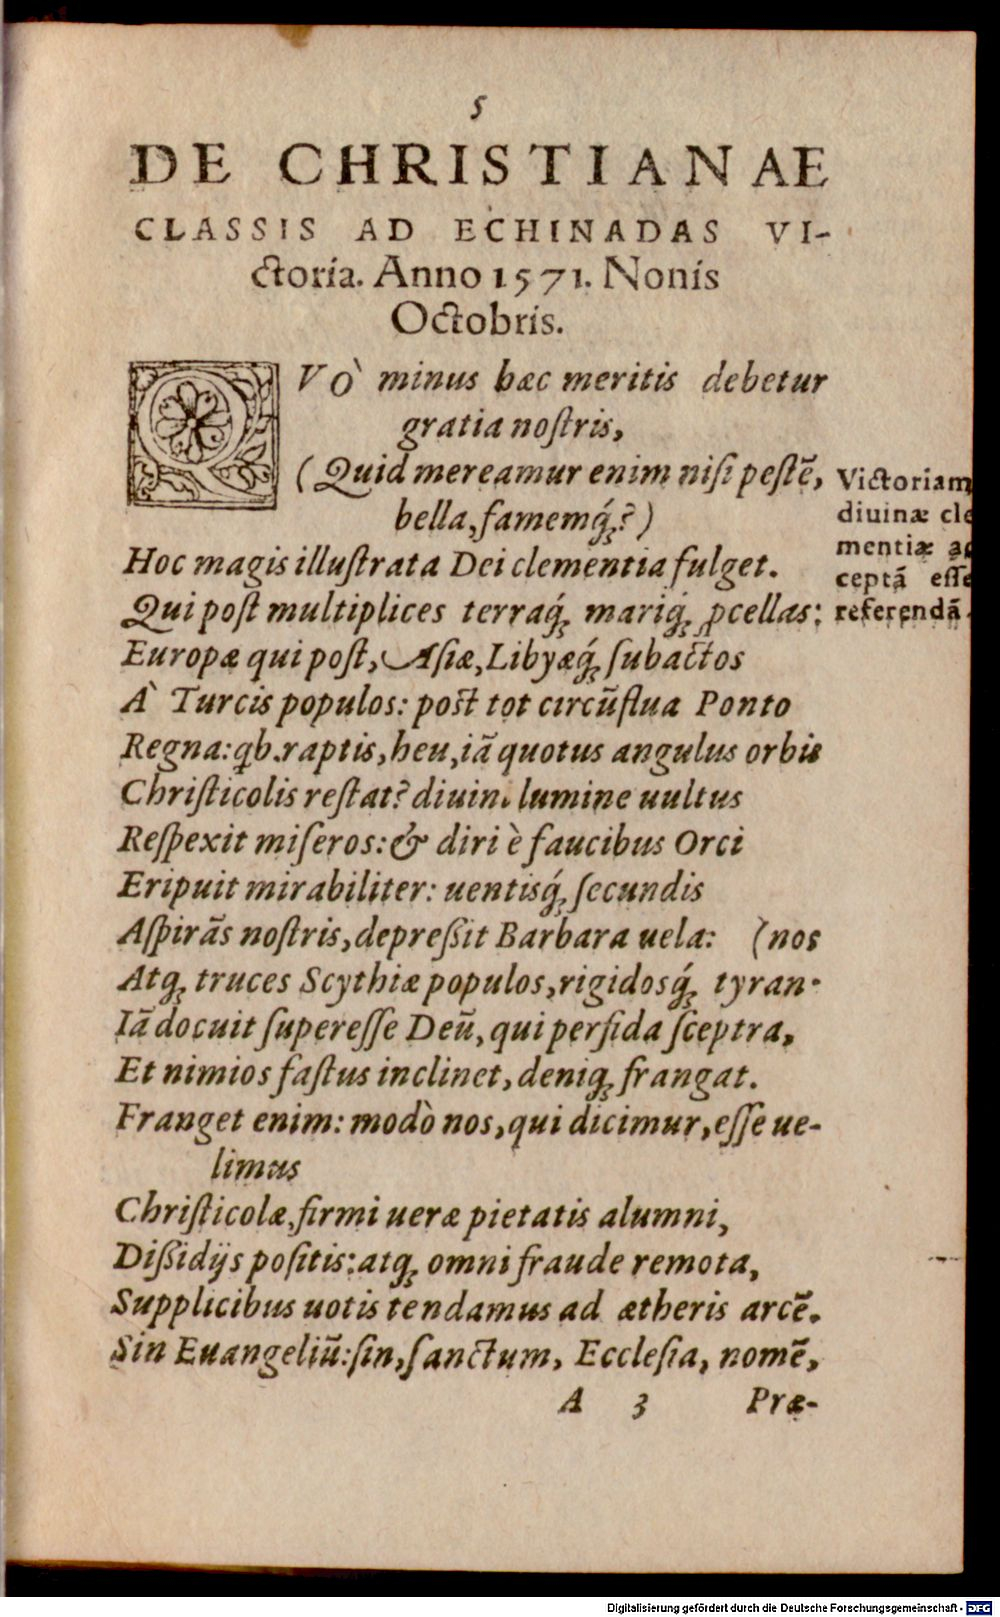 5
DE CHRISTIANAE
CLASSIS AD ECHINADAS VI-
ctoria. Anno 1571. Nonis
Octobris.
QVÒ minus hæc meritis debetur
gratia noſtris,
(Quid mereamur enim niſi peſtē,
bella, famemq́ꝫ?)
Hoc magis illuſtrata Dei clementia fulget.
Qui poſt multiplices terraq́ꝫ mariq́ꝫ ꝓcellas:
Europæ qui poſt, Aſiæ, Libyæq́ꝫ ſubactos
À Turcis populos: poſt tot circūflua Ponto
Regna: qb. raptis, heu, iā quotus angulus orbis
Chriſticolis reſtat? lumine uultus
Reſpexit miſeros: & diri è faucibus Orci
Eripuit mirabiliter: uentisq́ꝫ ſecundis
Aſpirās noſtris, depreßit Barbara uela: (nos
Atqꝫ truces Scythiæ populos, rigidosq́ꝫ tyran-
Iā docuit ſupereſſe Deū, qui perfida ſceptra,
Et nimios faſtus inclinet, deniqꝫ frangat.
Franget enim: modò nos, qui dicimur, eſſe ue-
limus
Chriſticolæ, firmi ueræ pietatis alumni,
Dißidijs poſitis: atqꝫ omni fraude remota,
Supplicibus uotis tendamus ad ætheris arcē.
Sin Euangeliū: ſin, ſanctum, Eccleſia, nomē,
A 3 Præ-
Victoriam
diuinæ cle
mentiæ ac
ceptā eſſe
referendā.
Digitalisierung gefördert durch die Deutsche Forschungsgemeinschaft - DFG